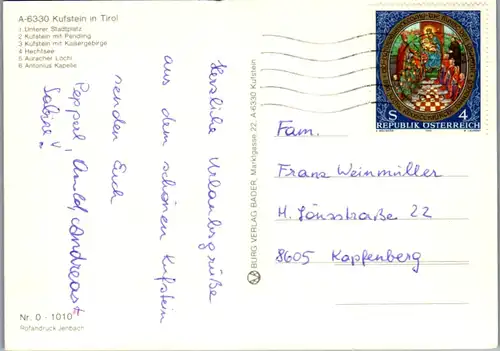 A-6330 Kufstein in Tirol
1 Unterer Stadtplatz
2 Kufstein mit Pendling
3 Kufstein mit Kaisergebirge
4 Hechtsee
5 Auracher Löchl
6 Antonius Kapelle
Herzliche Urlaubsgrüße
aus dem schönen Kufstein
senden Euch
Peppal, Arnold, Andreas +
Sabine
Nr. 0 - 1010
Rofandruck Jenbach
BURG VERLAG BADER, Marktgasse 22, A-6330 Kufstein
S 4
REPUBLIK ÖSTERREICH
Fam.
Franz Weinmüller
H. Lönsstraße 22
8605 Kapfenberg